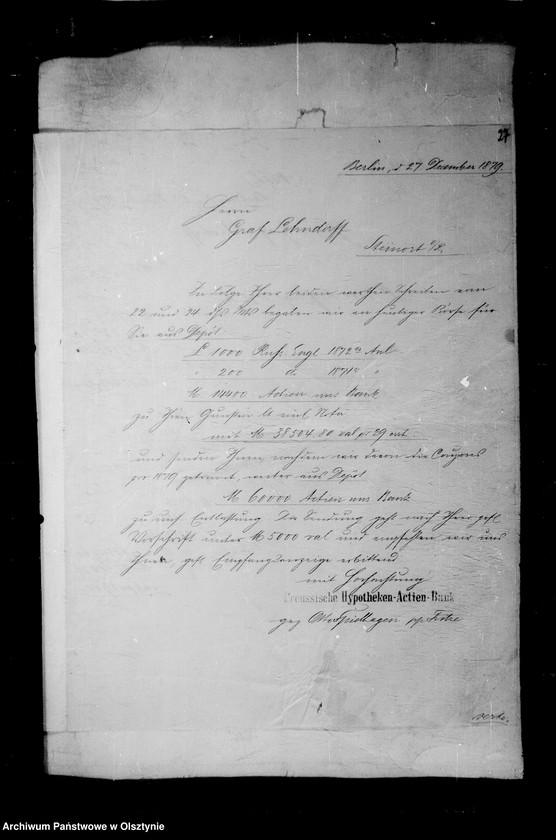 27
Berlin, d 27 December 1879.
Herrn
Graf Lehndorff
Steinort
In Folge Ihrer beiden werthen Schreiben vom
22 und 24 dfs Mts begaben wir an heutiger Börse für
Sie aus Depôt:
£ 1000 Russ. Engl 1872er Anl
" 200 do 1871er "
M 14400 Actien uns Bank
zu Ihren Gunsten Nota
mit M 38504.80 val pr 29 crt.
und senden Ihnen nachdem wir davon die Coupons
pro 1879 getrennt, weiter aus Depôt
M 60000 Actien uns Bank
zu uns Entlastung Die Sendung geht nach Ihrer gefl
Vorschrift unter M 5000 val und empfehlen wir uns
Ihnen gefl Empfangsanzeige erbittend
mit Hochachtung
Preussische Hypotheken-Actien-Bank
gez Otto Spielhagen pp
Archiwum Państwowe w Olsztynie